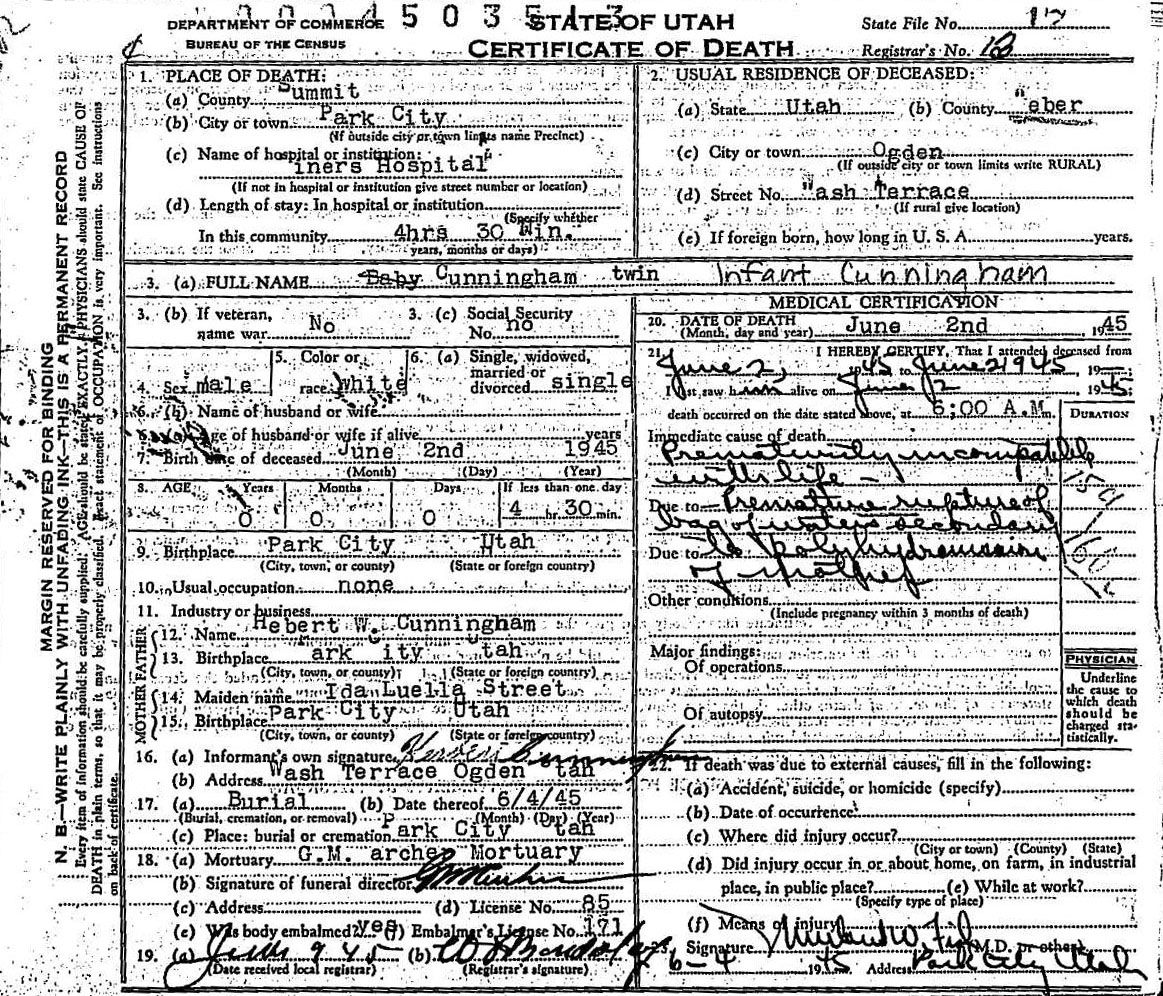 DEPARTMENT OF COMMERCE
BUREAU OF THE CENSUS
STATE OF UTAH
CERTIFICATE OF DEATH
State File No. 17
Registrar's No.
MARGIN RESERVED FOR BINDING
N. B.—WRITE PLAINLY WITH UNFADING INK—THIS IS A PERMANENT RECORD
Every item of information should be carefully supplied. AGE should be stated EXACTLY. PHYSICIANS should state CAUSE OF
DEATH in plain terms, so that it may be properly classified. Exact statement of OCCUPATION is very important. See instructions
on back of certificate.
1. PLACE OF DEATH:
(a) County Summit
(b) City or town Park City
(If outside city or town limits name Precinct)
(c) Name of hospital or institution:
iners Hospital
(If not in hospital or institution give street number or location)
(d) Length of stay: In hospital or institution
(Specify whether
In this community 4hrs 30 Min.
years, months or days)
2. USUAL RESIDENCE OF DECEASED:
(a) State Utah (b) County eber
(c) City or town Ogden
(If outside city or town limits write RURAL)
(d) Street No. Wash Terrace
(If rural give location)
(e) If foreign born, how long in U. S. A. years.
3. (a) FULL NAME Baby Cunningham twin Infant Cunningham
3. (b) If veteran, name war No
3. (c) Social Security No. no
4. Sex male
5. Color or race White
6. (a) Single, widowed, married or divorced single
6. (b) Name of husband or wife
Age of husband or wife if alive years
7. Birth date of deceased June 2nd 1945
(Month) (Day) (Year)
8. AGE Years Months Days If less than one day
0 0 0 4 hr. 30 min.
9. Birthplace Park City Utah
(City, town, or county) (State or foreign country)
10. Usual occupation none
11. Industry or business
FATHER
12. Name Hebert W. Cunningham
13. Birthplace ark ity tah
(City, town, or county) (State or foreign country)
MOTHER
14. Maiden name Ida Luella Street
15. Birthplace Park City Utah
(City, town, or county) (State or foreign country)
16. (a) Informant's own signature Cunningham
(b) Address Wash Terrace Ogden tah
17. (a) Burial (b) Date thereof 6/4/45
(Burial, cremation, or removal) (Month) (Day) (Year)
(c) Place: burial or cremation Park City tah
18. (a) Mortuary G.M. archer Mortuary
(b) Signature of funeral director
(c) Address (d) License No. 85
(e) Was body embalmed? yes (f) Embalmer's License No. 171
19. (a) 9 45 (b)
(Date received local registrar) (Registrar's signature)
MEDICAL CERTIFICATION
20. DATE OF DEATH
(Month, day and year) June 2nd 1945
21. I HEREBY CERTIFY, That I attended deceased from
June 2, 1945 to June 2 1945 19
I last saw him alive on June 2 1945;
death occurred on the date stated above, at 6:00 A.M.
DURATION
Immediate cause of death
Prematurity incompatible
with life -
Due to Premature rupture of
bag of waters secondary
Due to to
of
Other conditions
(Include pregnancy within 3 months of death)
Major findings:
Of operations
Of autopsy
PHYSICIAN
Underline
the cause to
which death
should be
charged sta-
tistically.
22. If death was due to external causes, fill in the following:
(a) Accident, suicide, or homicide (specify)
(b) Date of occurrence
(c) Where did injury occur?
(City or town) (County) (State)
(d) Did injury occur in or about home, on farm, in industrial
place, in public place? (e) While at work?
(Specify type of place)
(f) Means of injury
Signature (M.D. or other)
6-4 1945 Address Park City Utah